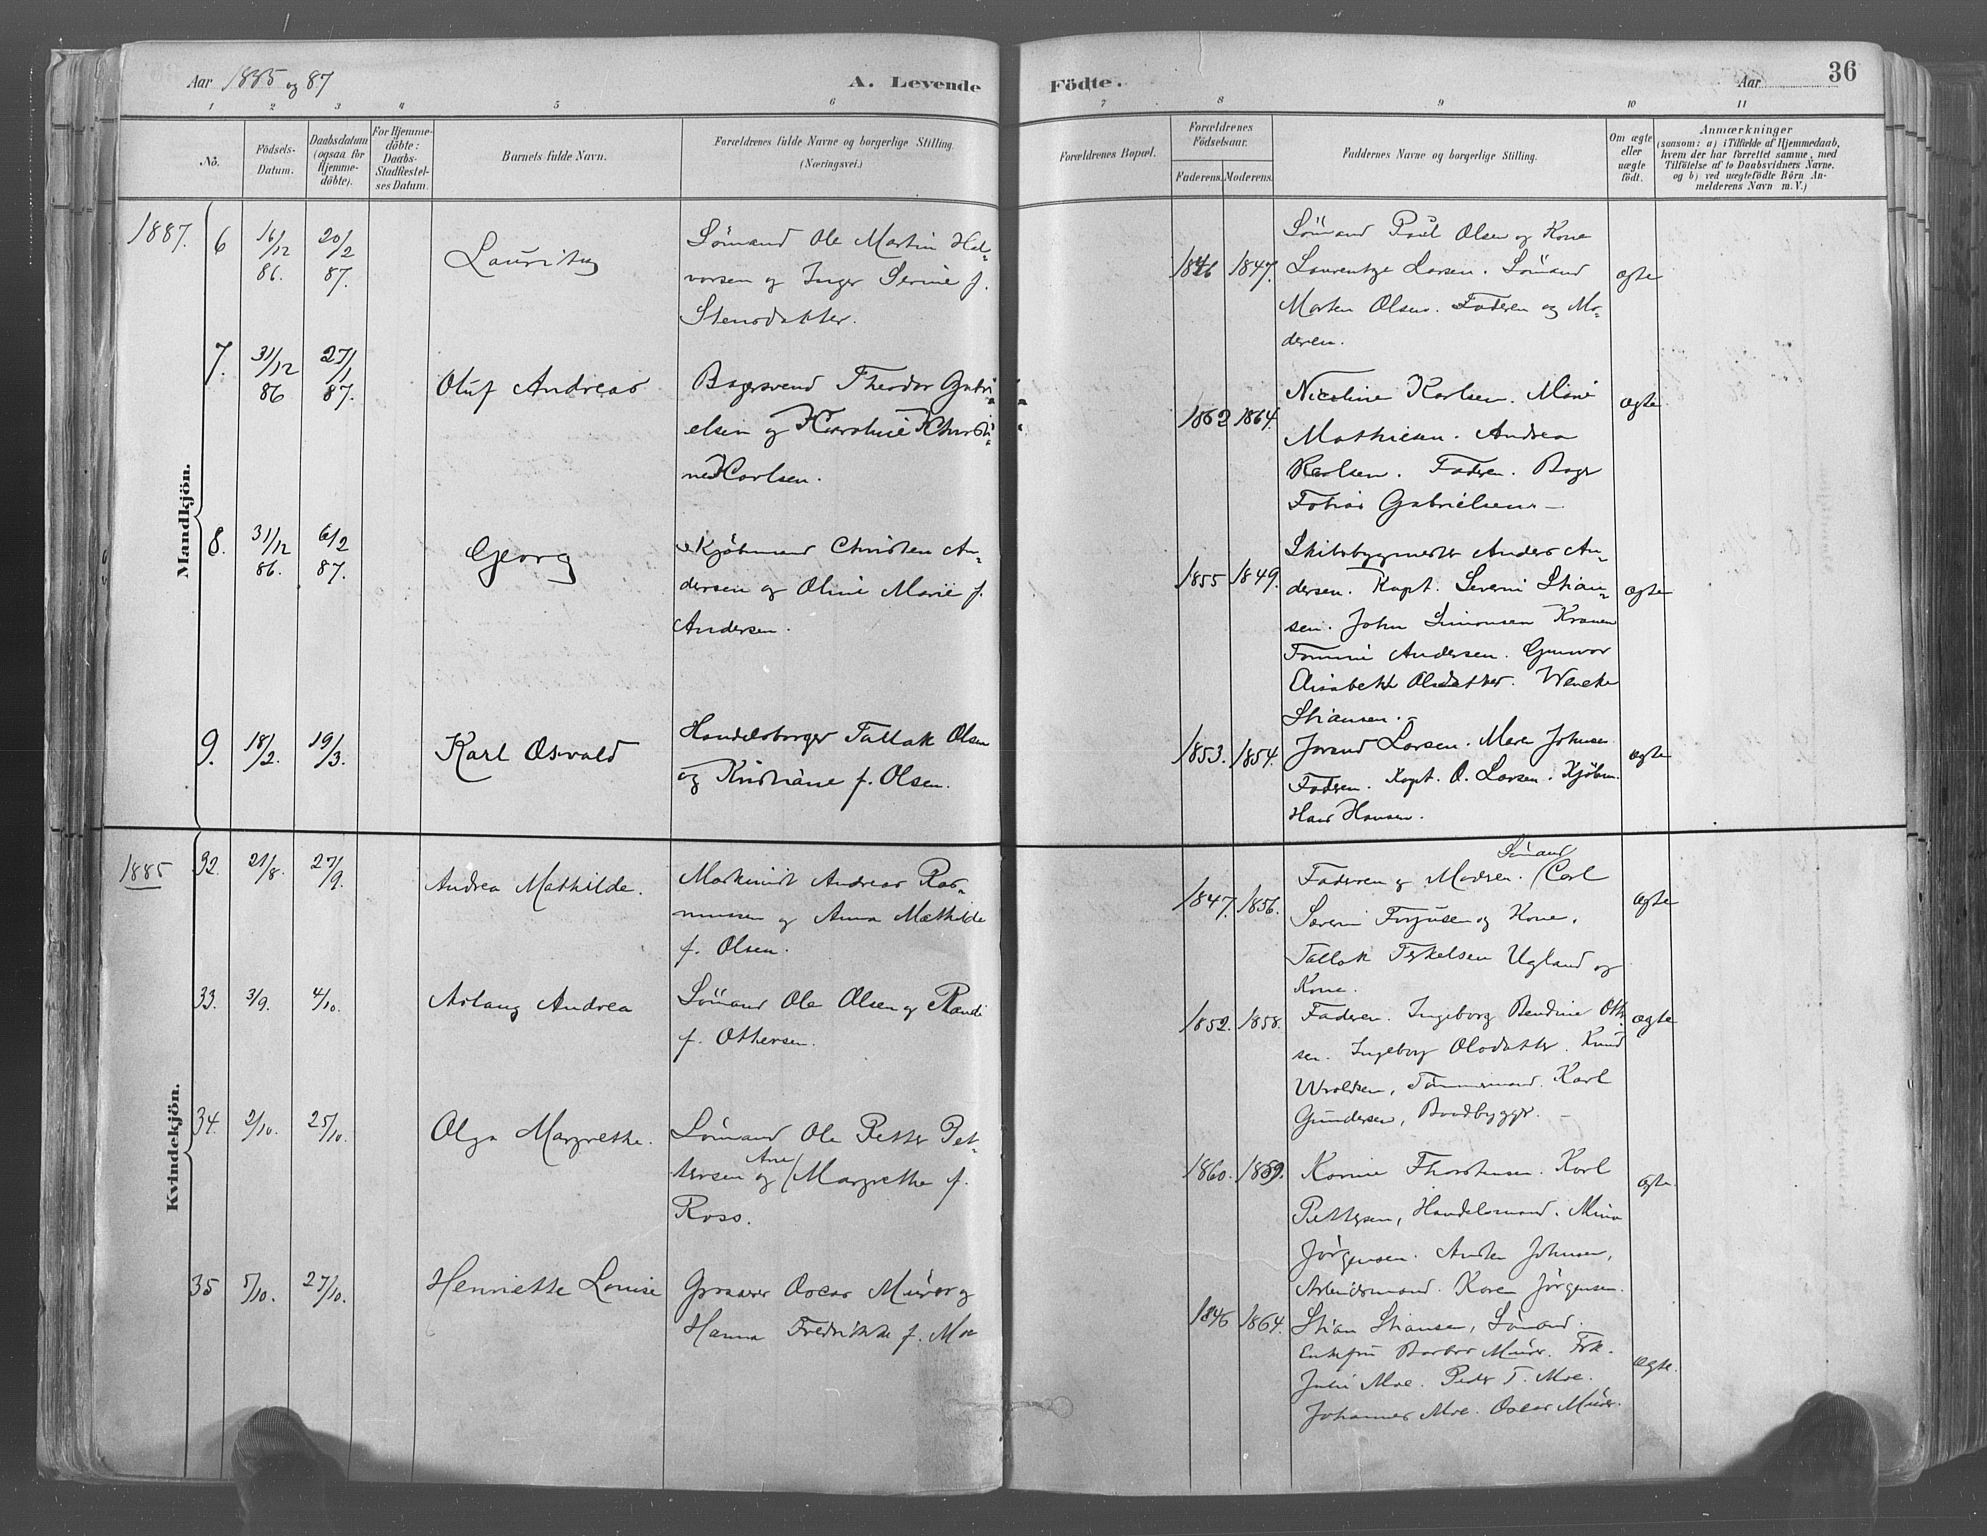 Aar 1885 og 87
A. Levende
Födte.
Aar
36
1 2 3 4 5 6 7 8 9 10 11
No.
Födsels-
Datum.
Daabsdatum
(ogsaa for
Hjemme-
döbte).
For Hjemme-
döbte:
Daabs-
Stadfæstel-
ses Datum.
Barnets fulde Navn.
Forældrenes fulde Navne og borgerlige Stilling.
(Næringsvei.)
Forældrenes Bopæl.
Forældrenes
Födselsaar.
Faderens. Moderens.
Faddernes Navne og borgerlige Stilling.
Om ægte
eller
uægte
födt.
Anmærkninger
(sonsom: a) i Tilfælde af Hjemmedaab,
hvem der har forrettet samme, med
Tilföielse af to Daabsvidners Navne,
og b) ved uægtefödte Börn An-
melderens Navn m. V.)
Mandkjön.
1887.
6
16/12
86.
20/2
87.
Lauritz
Sømand Ole Martin Hal-
vorsen og Inger Serine f.
Stensdatter.
1846 1847.
Sømand Paul Olsen og Kone
Laurentze Larsen. Sømand
Morten Olsens. Faderen og Mo-
deren.
ægte
7.
31/12
86
27/1
87.
Oluf Andreas
Bagersvend Theodor Gabri-
elsen og Karoline Kristi-
ne Karlsen.
1862 1864.
Nicoline Karlsen. Marie
Mathiesen. Andrea
Karlsen. Faderen. Bager
Tobias Gabrielsen
ægte
8.
31/12
86.
6/2
87.
Georg
Kjøbmand Christen An-
dersen og Oline Marie f.
Andersen.
1855 1849.
Skibsbygmester Anders An-
dersen. Kapt. Severin Stian-
sen. John Simonsen
Tomine Andersen. Gunvor
Elisabeth Olsdatter. Wencke
Stiansen.
ægte
9.
18/2.
19/3.
Karl Osvald
Handelsborger Tallak Olsen
og Kristiane f. Olsen.
1853. 1854.
Larsen. Maren Johnsen
Faderen. Kapt. O. Larsen. Kjøbm.
Hans Hansen.
ægte
Kvindekjön.
1885
32.
21/8.
27/9.
Andrea Mathilde.
Andreas Ras-
mussen og Anna Mathilde
f. Olsen.
1847. 1856.
Sømand
Faderen og Moderen. Carl
Severin og Kone.
Tallak Terkelsen Ugland og
Kone.
ægte
33.
3/9.
4/10.
Aslaug Andrea
Sømand Ole Olsen og Randi
f. Ottersen.
1852. 1858.
Faderen. Ingeborg Bendine Otter-
sen. Ingeborg Olsdatter. Knud
Wroldsen, Tømmermand. Karl
Gundersen, Baadbygger.
ægte
34.
2/10.
25/10.
Olga Margrethe.
Sømand Ole Petter Pet-
tersen og Ane Margrethe f.
Ross.
1860. 1859.
Karine Thorstensen. Karl
Pettersen, Handelsmand. Mina
Jørgensen. Johnsen,
Arbeidsmand. Karen Jørgensen.
ægte.
35
5/10.
27/10.
Henriette Louise
Oscar Mürer og
Hanna Fredrikke f. Moe
1846 1864.
Stian Stiansen, Sømand.
Enkefru Barbra Mürer. Frk.
Julie Moe. Peder T. Moe.
Johannes Moe. Oscar Mürer.
ægte.